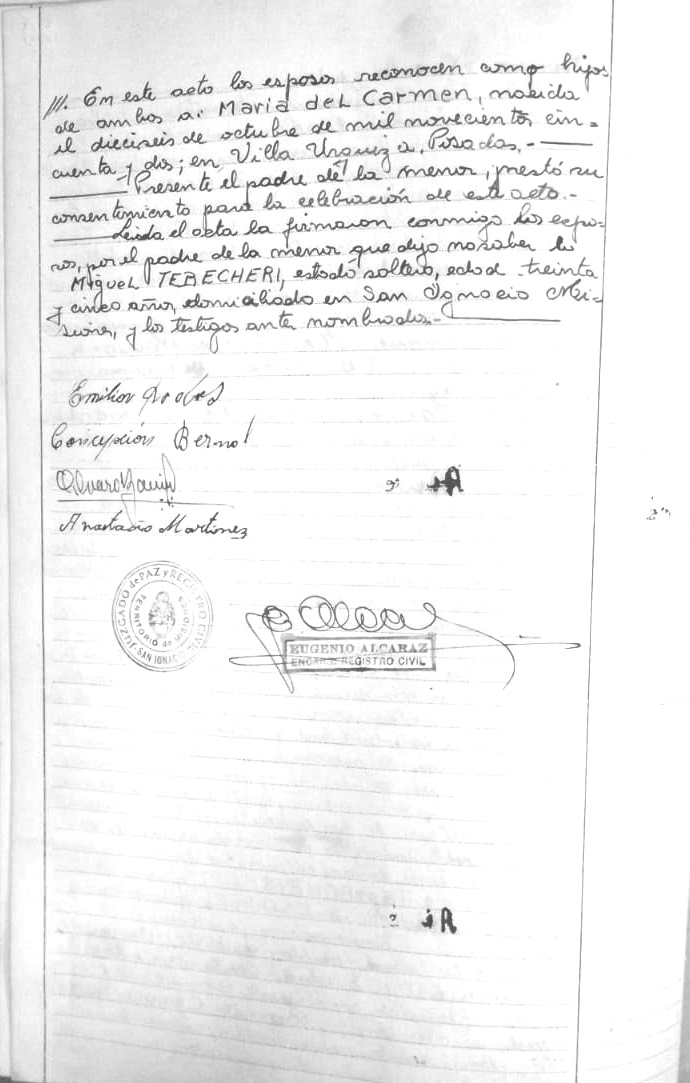 ///. En este acto los esposos reconocen como hijos
de ambos a: María del Carmen, nacida
el dieciseis de octubre de mil novecientos cin=
cuenta y dos; en Villa Urquiza, Posadas.-
Presente el padre de la menor, prestó su
consentimiento para la celebración de este acto.-
Leida el acta la firmaron conmigo los espo-
sos, por el padre de la menor que dijo no saber lo
Miguel TEBECHERI, estado soltero, edad treinta
y cinco años, domiciliado en San Ignacio Mi-
siones, y los testigos ante nombrados.-
Emilion
Concepción Bernal
Alvaro
Anastacio Martinez
JUZGADO de PAZ y REGISTRO CIVIL
TERRITORIO de MISIONES
SAN IGNACIO
EUGENIO ALCARAZ
ENCARG. REGISTRO CIVIL